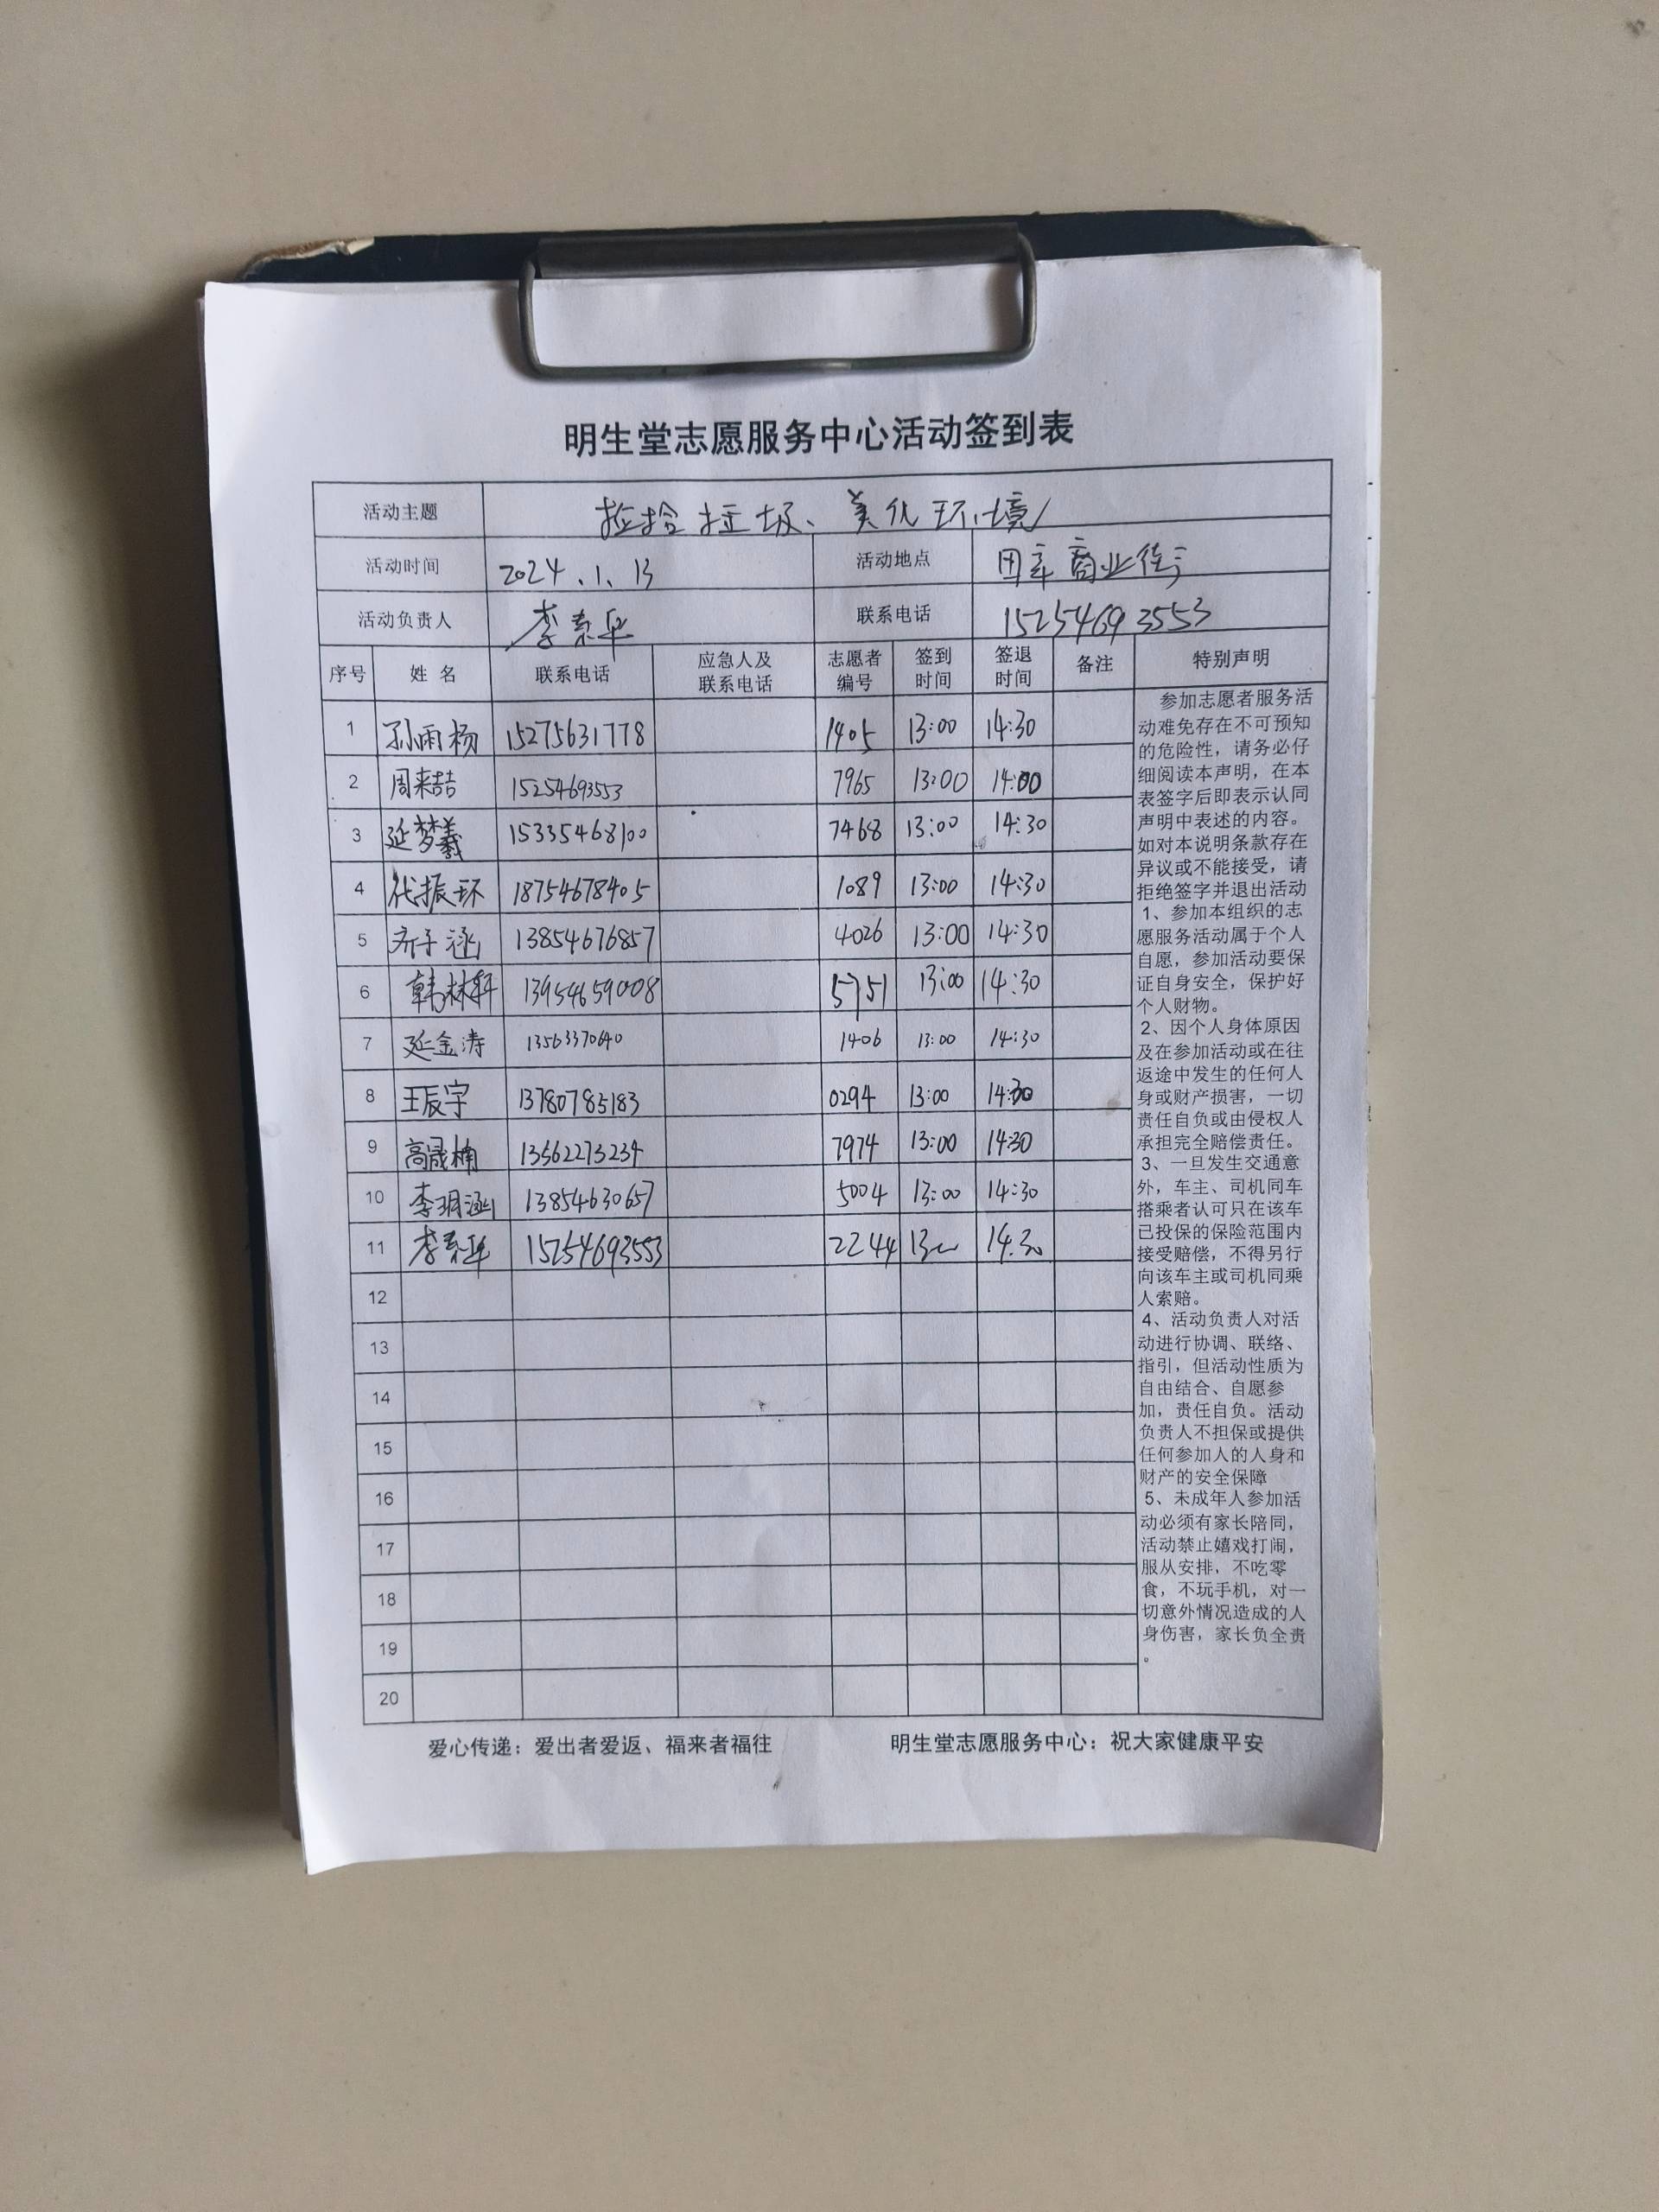 明生堂志愿服务中心活动签到表
活动主题 捡拾垃圾、美化环境
活动时间 2024.1.13 活动地点 商业街
活动负责人 李素华 联系电话 15254693553
序号 姓名 联系电话 应急人及联系电话 志愿者编号 签到时间 签退时间 备注 特别声明
1 孙雨杨 15275631778 1405 13:00 14:30
2 周来喆 15254693553 7965 13:00 14:00
3 延梦羲 15335468100 7468 13:00 14:30
4 代振环 18754678405 1089 13:00 14:30
5 齐子涵 13854676857 4026 13:00 14:30
6 韩林轩 13954659008 5751 13:00 14:30
7 延金涛 13563370640 1406 13:00 14:30
8 王辰宇 13780785183 0294 13:00 14:30
9 高晟楠 13562273234 7974 13:00 14:30
10 李玥涵 13854630657 5004 13:00 14:30
11 李素华 15254693553 2244 14:30
12
13
14
15
16
17
18
19
20
参加志愿者服务活
动难免存在不可预知
的危险性，请务必仔
细阅读本声明，在本
表签字后即表示认同
声明中表述的内容。
如对本说明条款存在
异议或不能接受，请
拒绝签字并退出活动
1、参加本组织的志
愿服务活动属于个人
自愿，参加活动要保
证自身安全，保护好
个人财物。
2、因个人身体原因
及在参加活动或在往
返途中发生的任何人
身或财产损害，一切
责任自负或由侵权人
承担完全赔偿责任。
3、一旦发生交通意
外，车主、司机同车
搭乘者认可只在该车
已投保的保险范围内
接受赔偿，不得另行
向该车主或司机同乘
人索赔。
4、活动负责人对活
动进行协调、联络、
指引，但活动性质为
自由结合、自愿参
加，责任自负。活动
负责人不担保或提供
任何参加人的人身和
财产的安全保障
5、未成年人参加活
动必须有家长陪同，
活动禁止嬉戏打闹，
服从安排，不吃零
食，不玩手机，对一
切意外情况造成的人
身伤害，家长负全责
。
爱心传递：爱出者爱返、福来者福往 明生堂志愿服务中心：祝大家健康平安